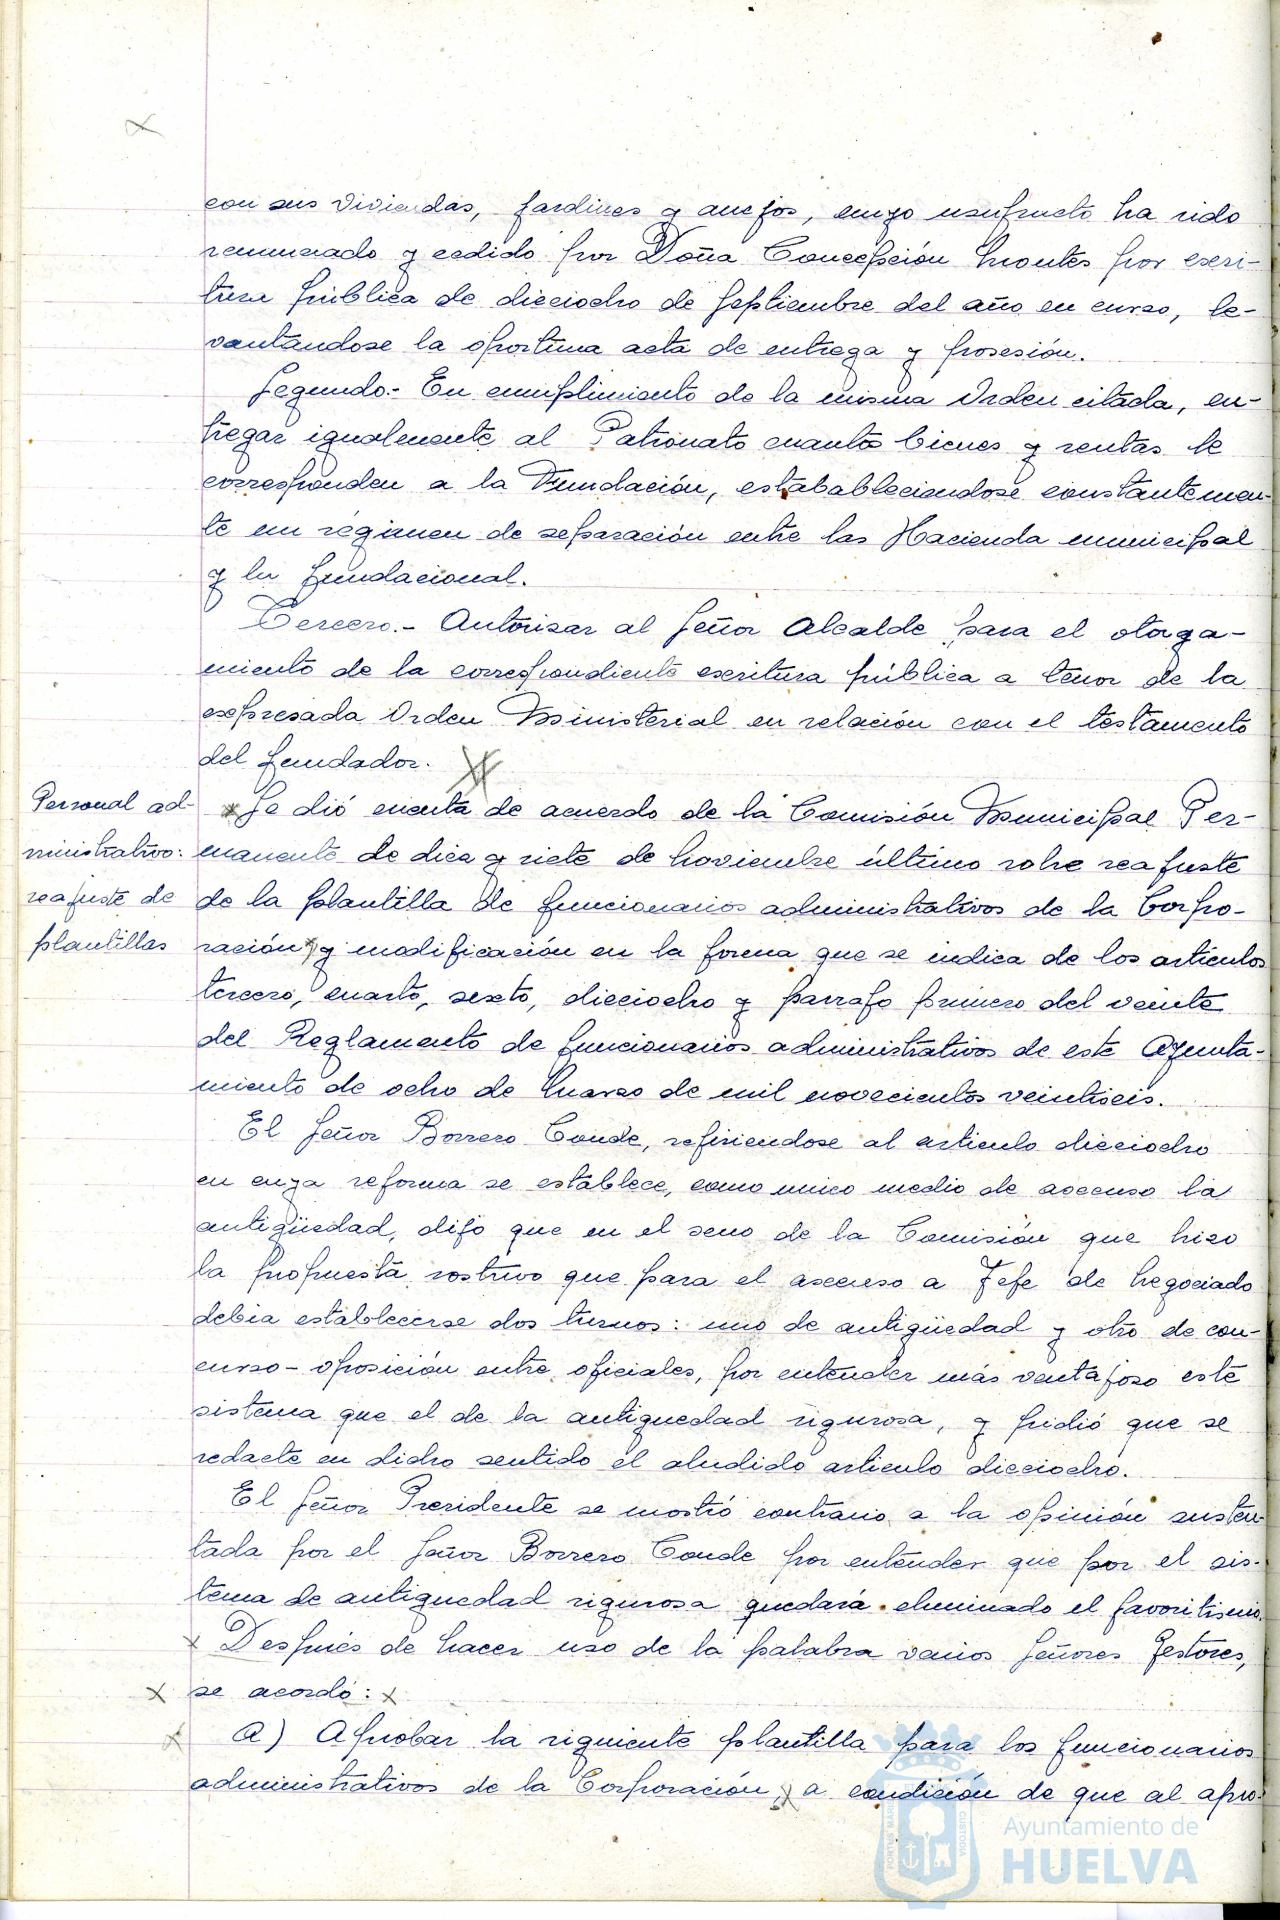 con sus viviendas, jardines y anejos, cuyo usufructo ha sido
renunciado y cedido por Doña Concepción Montes por escri-
tura pública de dieciocho de Septiembre del año en curso, le-
vantándose la oportuna acta de entrega y posesión.
Segundo.- En cumplimiento de la misma Orden citada, en-
tregar igualmente al Patronato cuantos bienes y rentas le
corresponden a la Fundación, estabableciendose constantemen-
te un régimen de separación entre las Hacienda municipal
y la fundacional.
Tercero.- Autorizar al Señor Alcalde para el otorga-
miento de la correspondiente escritura pública a tenor de la
expresada Orden Ministerial en relación con el testamento
del fundador.
Personal ad-
ministrativo:
reajuste de
plantillas
Se dió cuenta de acuerdo de la Comisión Municipal Per-
manente de diez y siete de Noviembre último sobre reajuste
de la plantilla de funcionarios administrativos de la Corpo-
ración y modificación en la forma que se indica de los artículos
tercero, cuarto, sexto, dieciocho y parrafo primero del veinte
del Reglamento de funcionarios administrativos de este Ayunta-
miento de ocho de Marzo de mil novecientos veintiseis.
El Señor Borrero Conde, refiriendose al articulo dieciocho
en cuya reforma se establece, como unico medio de ascenso la
antigüedad, dijo que en el seno de la Comisión que hizo
la propuesta sostuvo que para el ascenso a Jefe de Negociado
debia establecerse dos turnos: uno de antigüedad y otro de con-
curso-oposición entre oficiales, por entender más ventajoso este
sistema que el de la antiguedad rigurosa, y pidió que se
redacte en dicho sentido el aludido articulo dieciocho.
El Señor Presidente se mostró contrario a la opinión susten-
tada por el Señor Borrero Conde por entender que por el sis-
tema de antiguedad rigurosa quedará eliminado el favoritismo.
Después de hacer uso de la palabra varios Señores Gestores,
se acordó:
A) Aprobar la siguiente plantilla para los funcionarios
administrativos de la Corporación, a condición de que al apro-
PORTUS MARIS
CUSTODIA
Ayuntamiento de
HUELVA